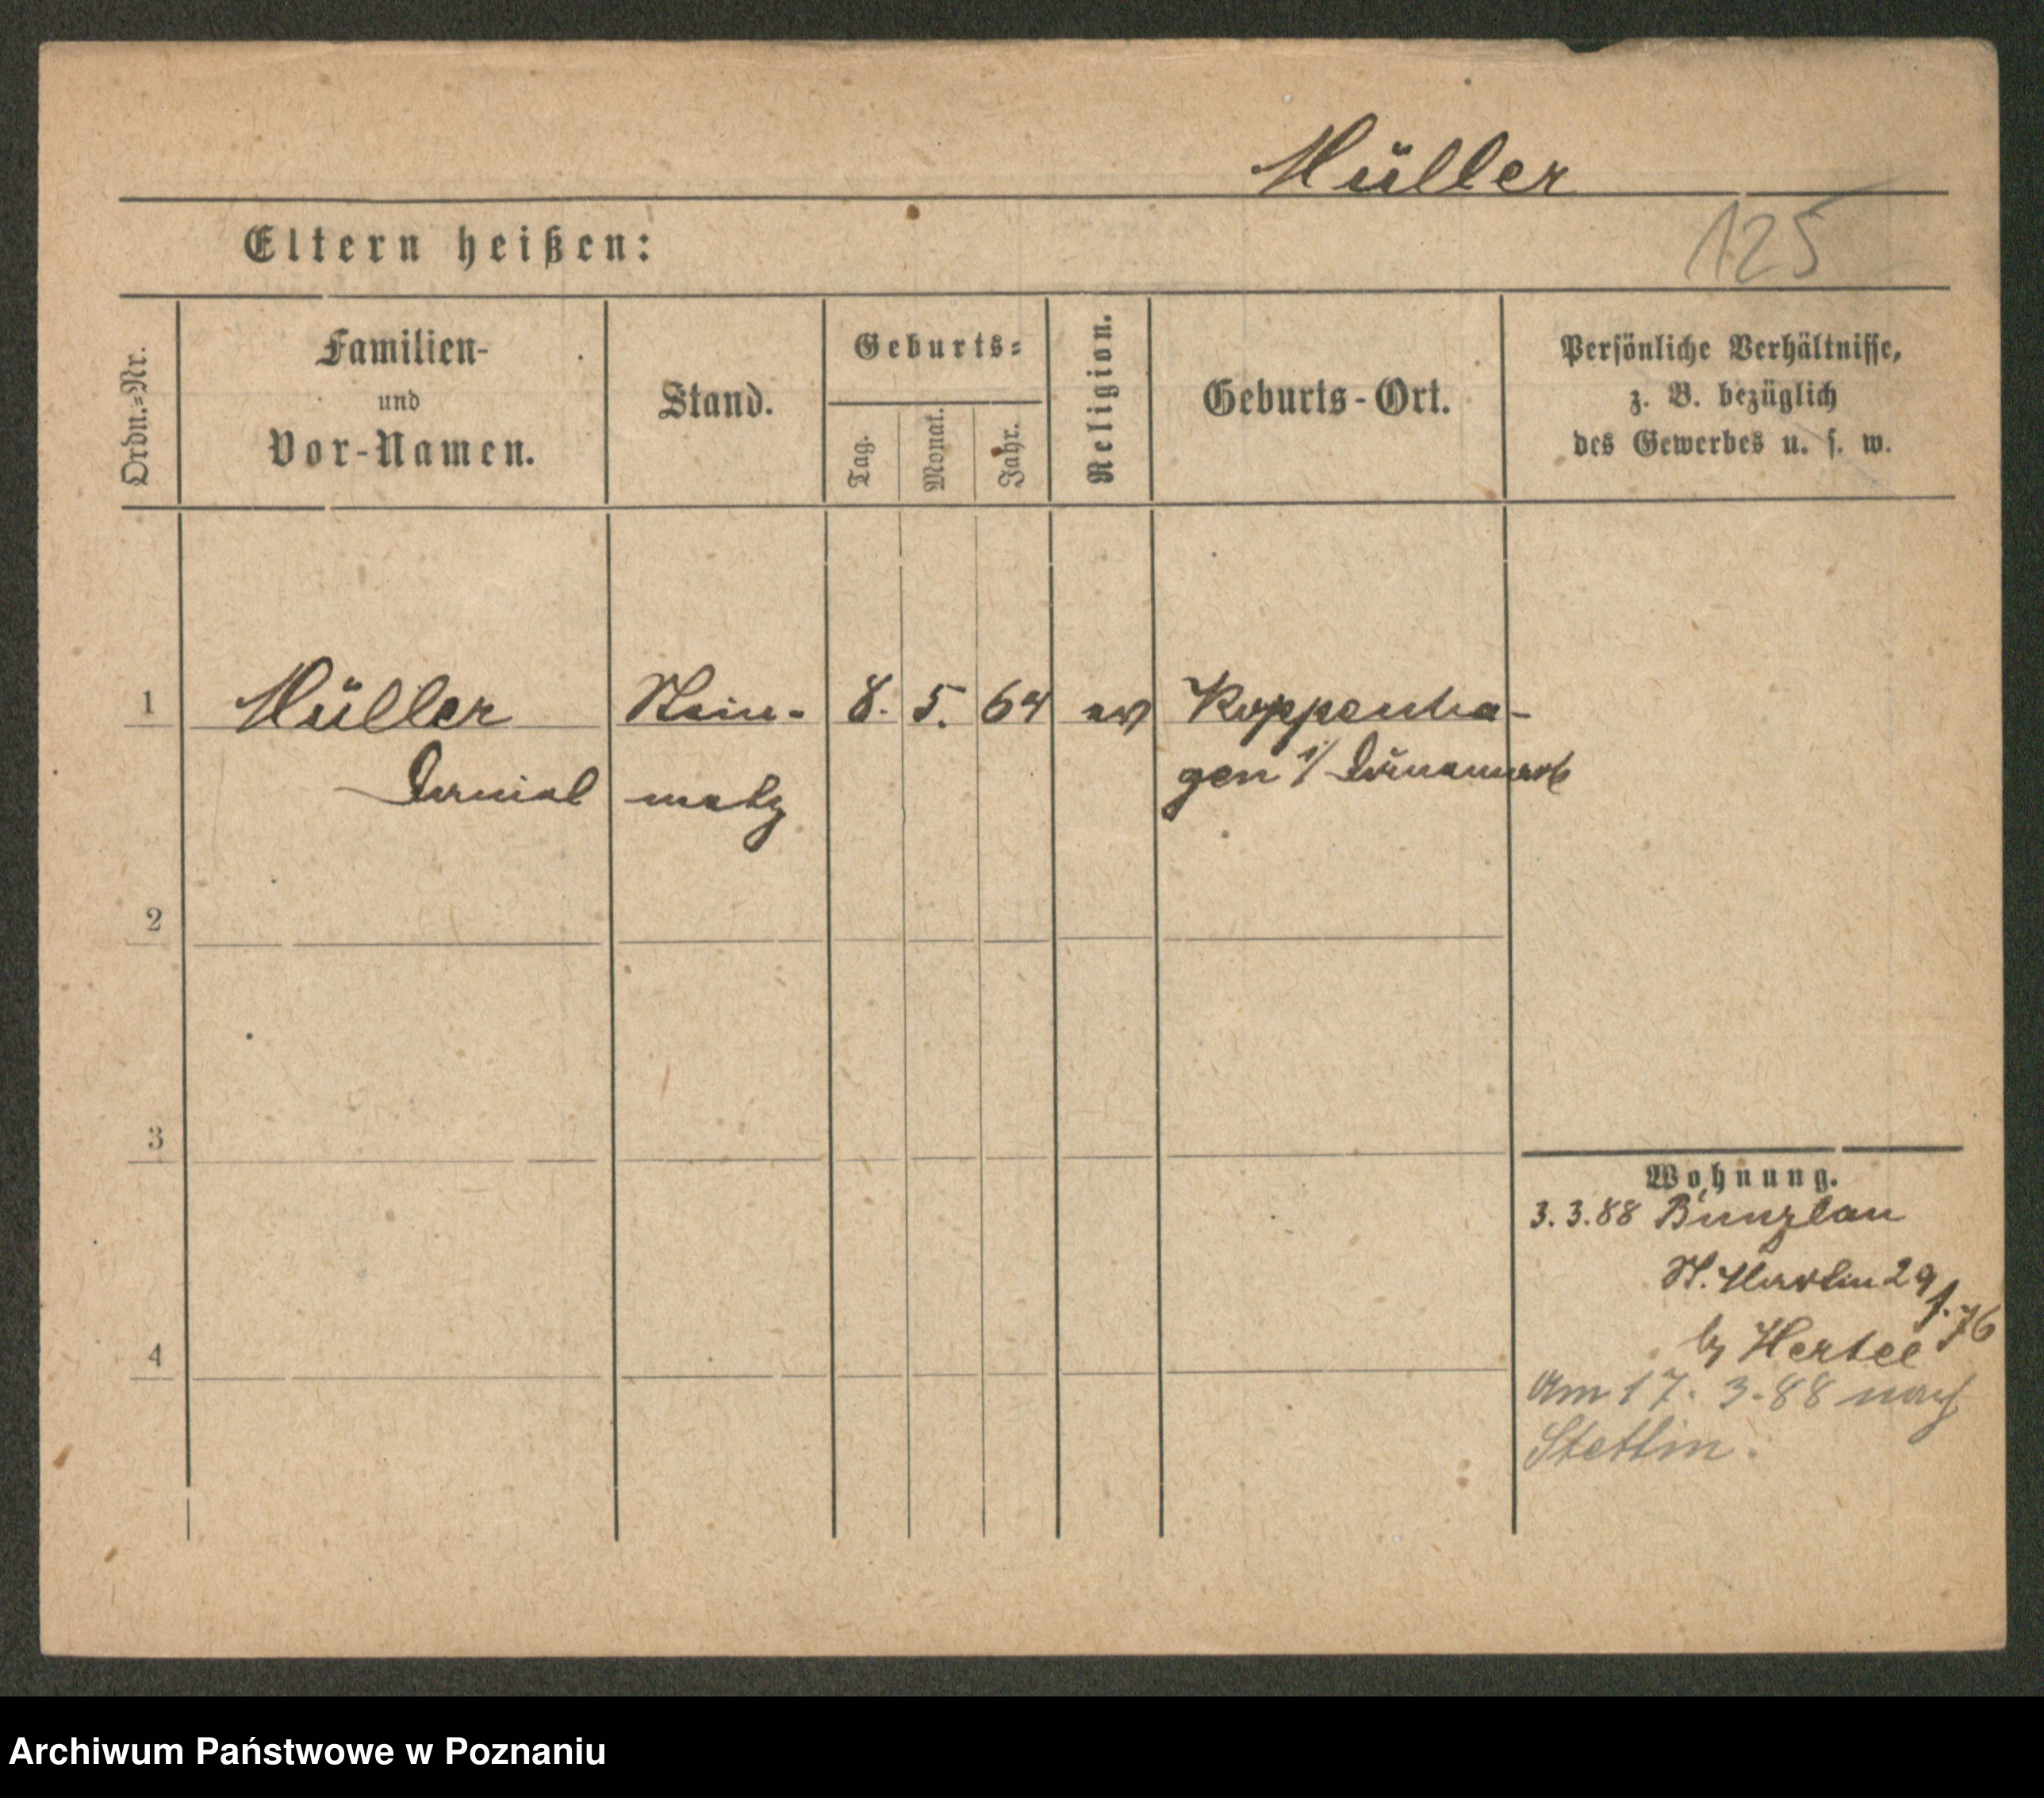 Müller
125
Eltern heißen:
Ordn.-Nr.
Familien-
und
Vor-Namen.
Stand.
Geburts-
Tag.
Monat.
Jahr.
Religion.
Geburts-Ort.
Persönliche Verhältnisse,
z. B. bezüglich
des Gewerbes u. s. w.
1 Müller Stein- 8. 5. 64 ev Koppenha-
Daniel metz gen i/ Dänemark
2
3
4
Wohnung.
3.3.88 Bunzlau
St. Martin 29
f. 76
b/ Hertel
Am 17. 3. 88 nach
Stettin.
Archiwum Państwowe w Poznaniu